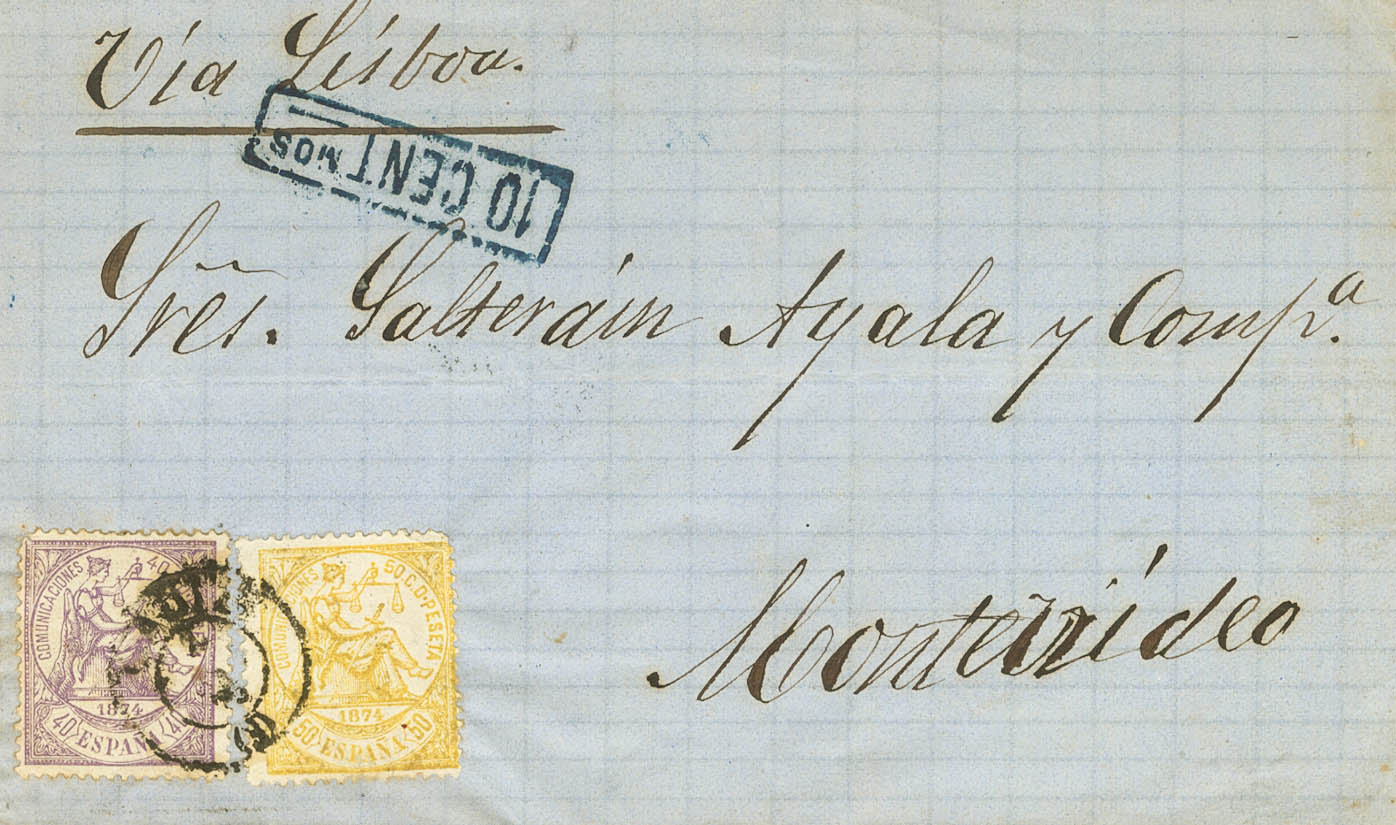 Vía Lisboa.
10 CENTMOS
Sr̃es. Salteráin Ayala y Comp.ª
Montevídeo
COMUNICACIONES 40
1874
40 ESPAÑA 40
50 C. D. PESETA
1874
50 ESPAÑA 50